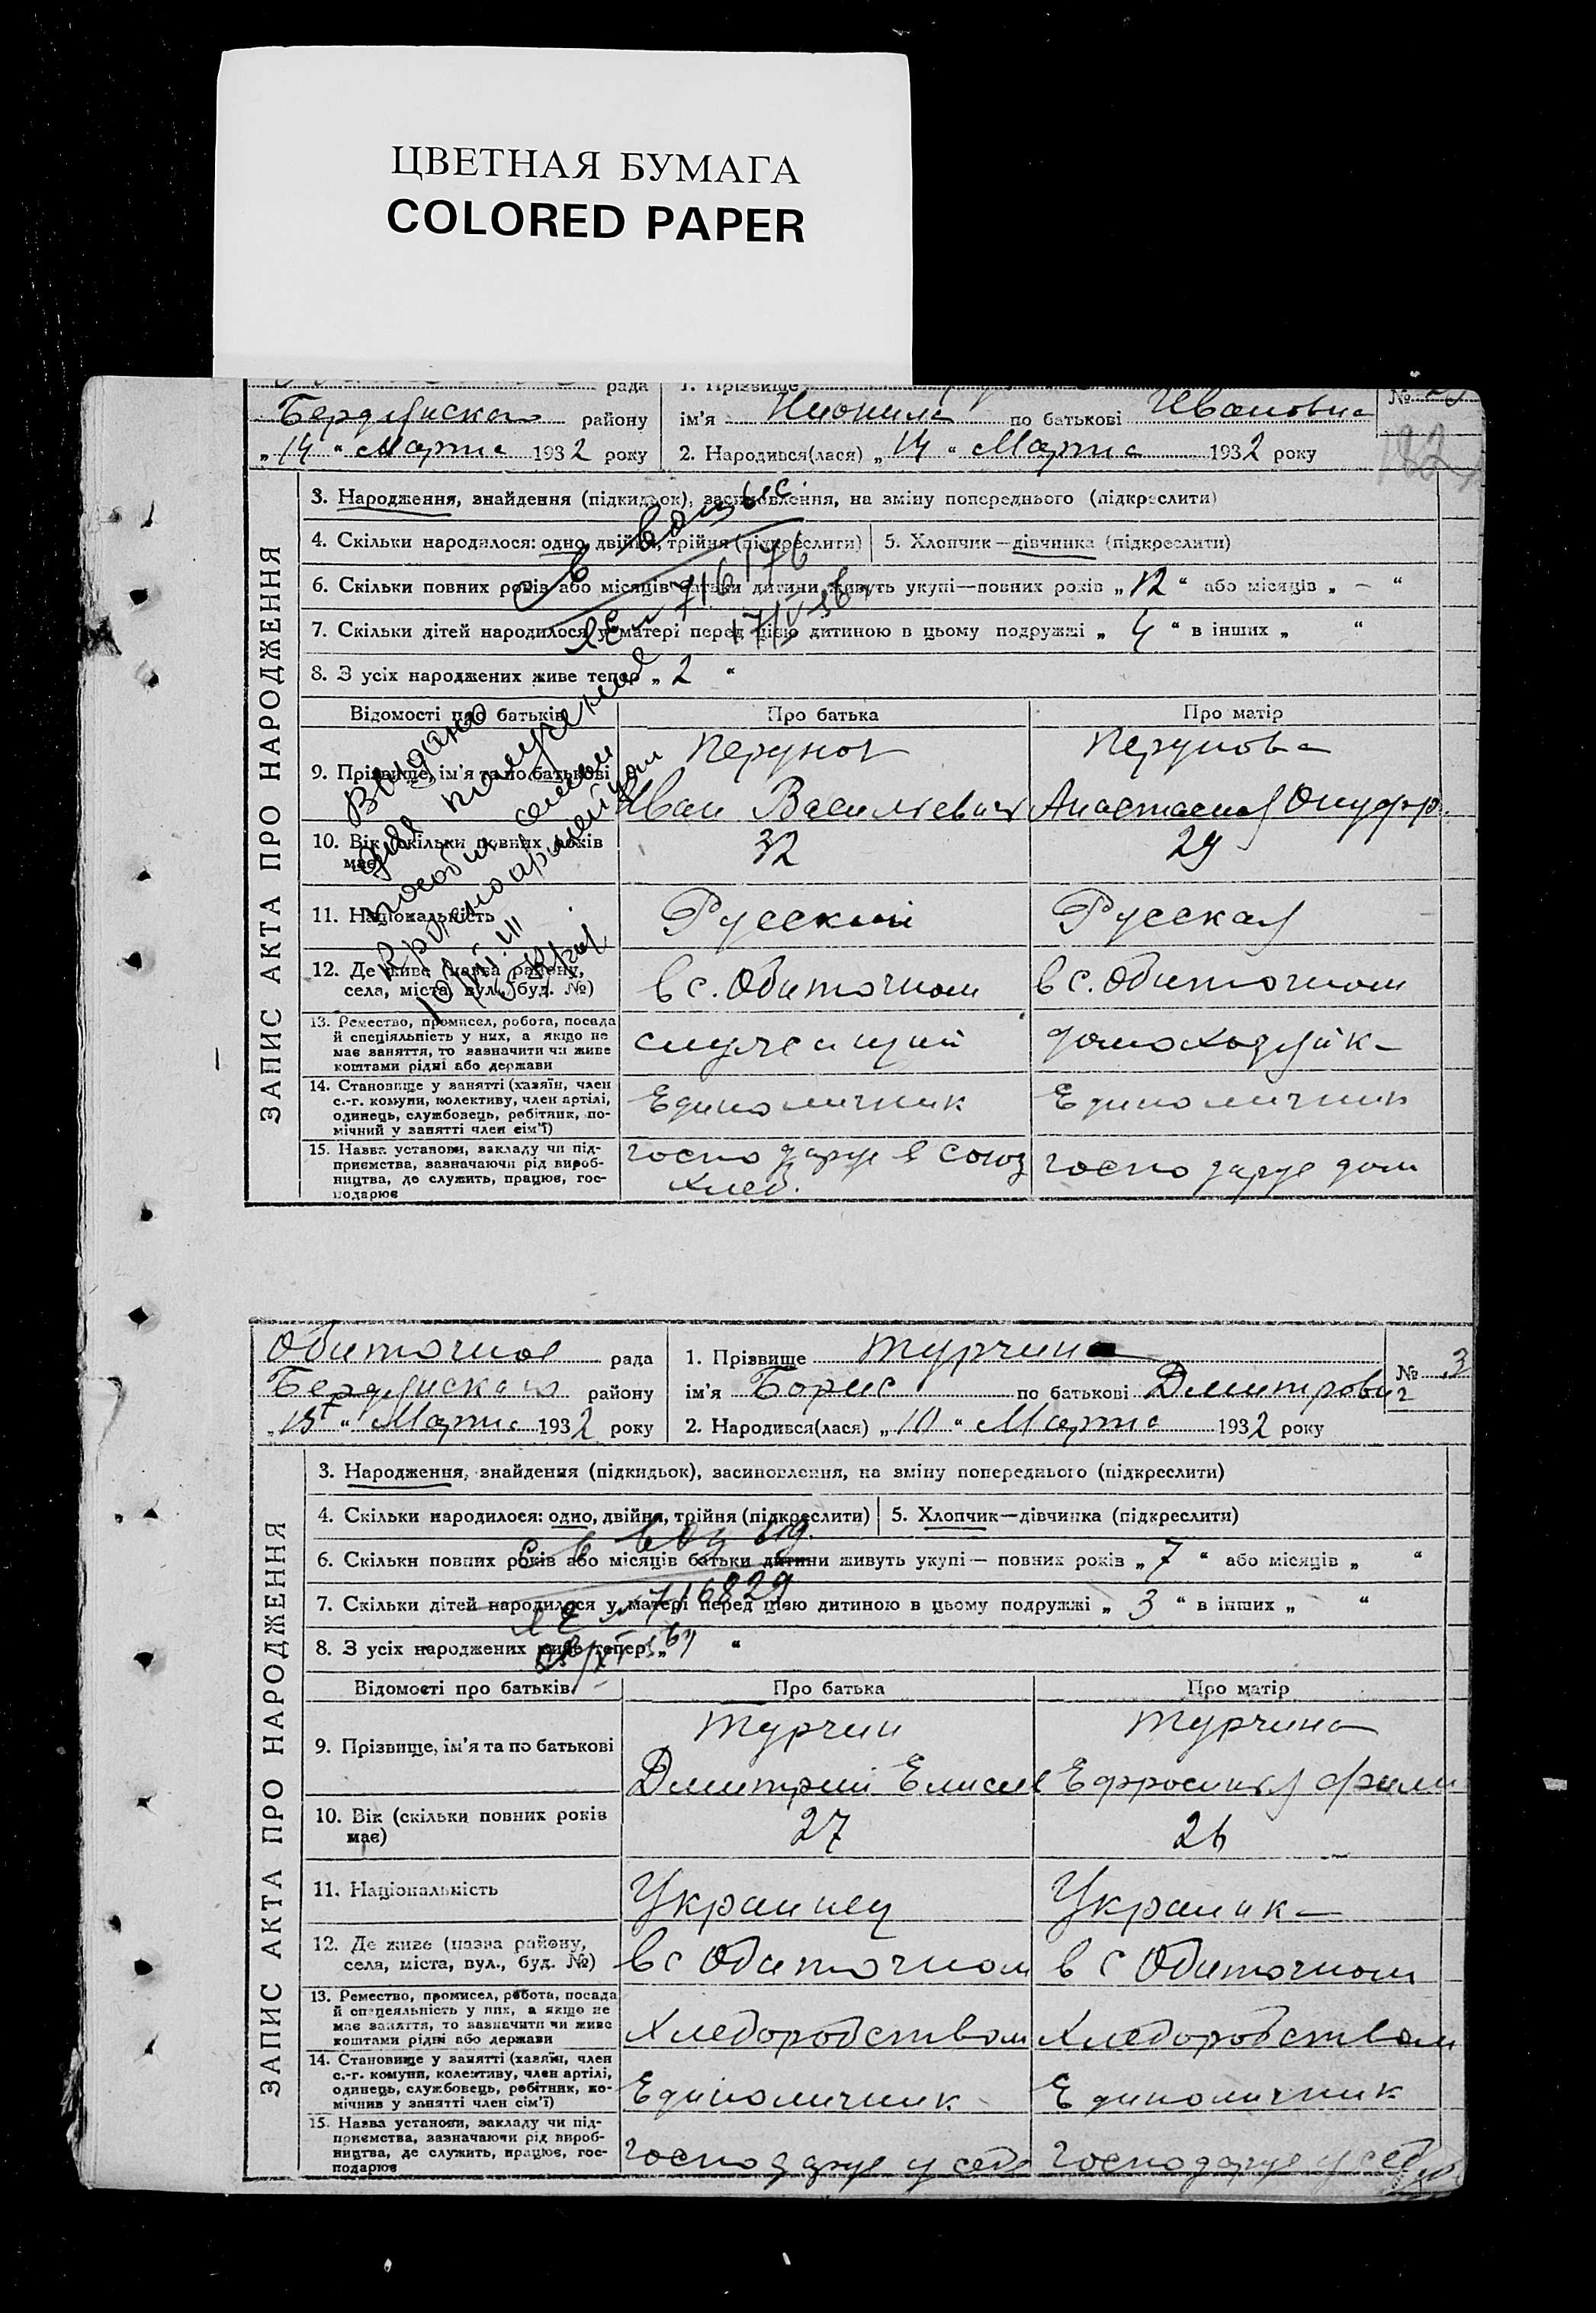 ЦВЕТНАЯ БУМАГА
COLORED PAPER
рада 1. Прізвище №
Бердянского району ім'я Неонила по батькові Ивановна
„14“ Марта 1932 року 2. Народився(лася) „14“ Марта 1932 року
182
ЗАПИС АКТА ПРО НАРОДЖЕННЯ
3. Народження, знайдення (підкидьок), засиновлення, на зміну попереднього (підкреслити)
4. Скільки народилося: одно, двійня, трійня (підкреслити) 5. Хлопчик—дівчинка (підкреслити)
6. Скільки повних років або місяців батьки дитини живуть укупі—повних років „12“ або місяців „ – “
7. Скільки дітей народилося у матері перед цією дитиною в цьому подружжі „ 4 “ в інших „ “
8. З усіх народжених живе тепер „ 2 “
Відомості про батьків Про батька Про матір
9. Прізвище, ім'я та по батькові
Перунов Перунова
Иван Васильевич Анастасия Онуфр.
10. Вік (скільки повних років має) 32 29
11. Національність Русский Русская
12. Де живе (назва району,
села, міста, вул., буд. №) в с. Обиточном в с. Обиточном
13. Ремество, промисел, робота, посада
й спеціяльність у них, а якщо не
має заняття, то зазначити чи живе
коштами рідні або держави
служащий домохозяйка
14. Становище у занятті (хазяїн, член
с.-г. комуни, колективу, член артілі,
одинець, службовець, робітник, по-
мічний у занятті член сім'ї)
Единоличник Единоличник
15. Назва установи, закладу чи під-
приємства, зазначаючи рід вироб-
ництва, де служить, працює, гос-
подарює
господарує в союз хлеб. господарує дом
Видано
для получения
пособия семьи
красноармейцам
Обиточное рада 1. Прізвище Турчин № 3
Бердянского району ім'я Борис по батькові Дмитрович
„15“ Марта 1932 року 2. Народився(лася) „10“ Марта 1932 року
ЗАПИС АКТА ПРО НАРОДЖЕННЯ
3. Народження, знайдення (підкидьок), засиновлення, на зміну попереднього (підкреслити)
4. Скільки народилося: одно, двійня, трійня (підкреслити) 5. Хлопчик—дівчинка (підкреслити)
6. Скільки повних років або місяців батьки дитини живуть укупі — повних років „ 7 “ або місяців „ “
7. Скільки дітей народилося у матері перед цією дитиною в цьому подружжі „ 3 “ в інших „ “
8. З усіх народжених живе тепер „ “
Відомості про батьків Про батька Про матір
9. Прізвище, ім'я та по батькові
Турчин Турчина
Дмитрий Елисее Ефросиния Фили
10. Вік (скільки повних років має) 27 26
11. Національність Украинец Украинка
12. Де живе (назва району,
села, міста, вул., буд. №) в с Обиточном в с Обиточном
13. Ремество, промисел, робота, посада
й спеціяльність у них, а якщо не
має заняття, то зазначити чи живе
коштами рідні або держави
Хлеборобством Хлеборобством
14. Становище у занятті (хазяїн, член
с.-г. комуни, колективу, член артілі,
одинець, службовець, робітник, по-
мічний у занятті член сім'ї)
Единоличник Единоличник
15. Назва установи, закладу чи під-
приємства, зазначаючи рід вироб-
ництва, де служить, працює, гос-
подарює
господарує у себе господарує у себе